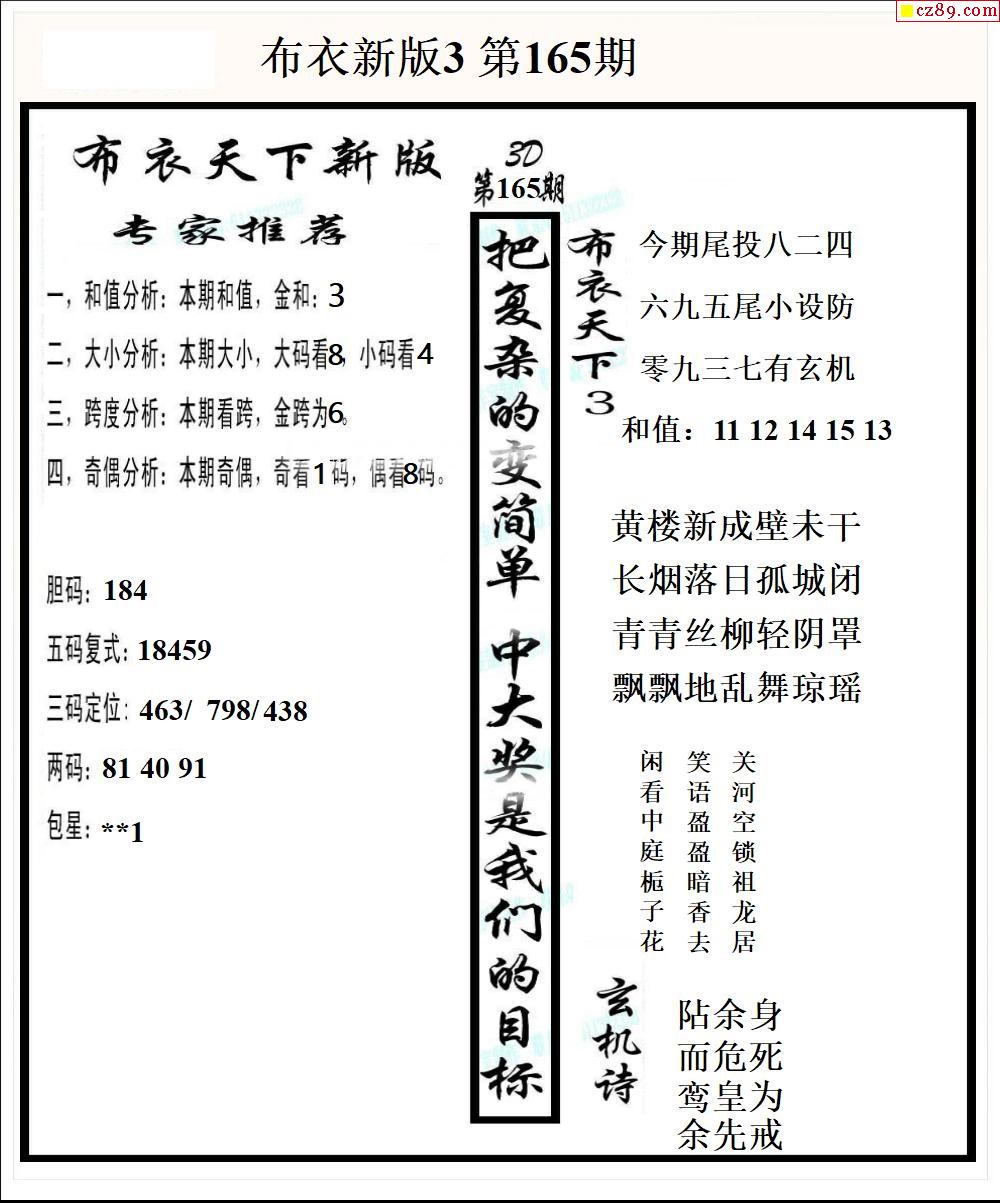 cz89.com
布衣新版3 第165期
布衣天下新版
专家推荐
一，和值分析：本期和值，金和：3
二，大小分析：本期大小，大码看8，小码看4
三，跨度分析：本期看跨，金跨为6。
四，奇偶分析：本期奇偶，奇看1码，偶看8码。
胆码：184
五码复式：18459
三码定位：463/ 798/438
两码：81 40 91
包星：**1
3D
第165期
把复杂的变简单 中大奖是我们的目标
布衣天下3
今期尾投八二四
六九五尾小设防
零九三七有玄机
和值：11 12 14 15 13
黄楼新成壁未干
长烟落日孤城闭
青青丝柳轻阴罩
飘飘地乱舞琼瑶
关河空锁祖龙居
笑语盈盈暗香去
闲看中庭栀子花
玄机诗
阽余身
而危死
鸾皇为
余先戒